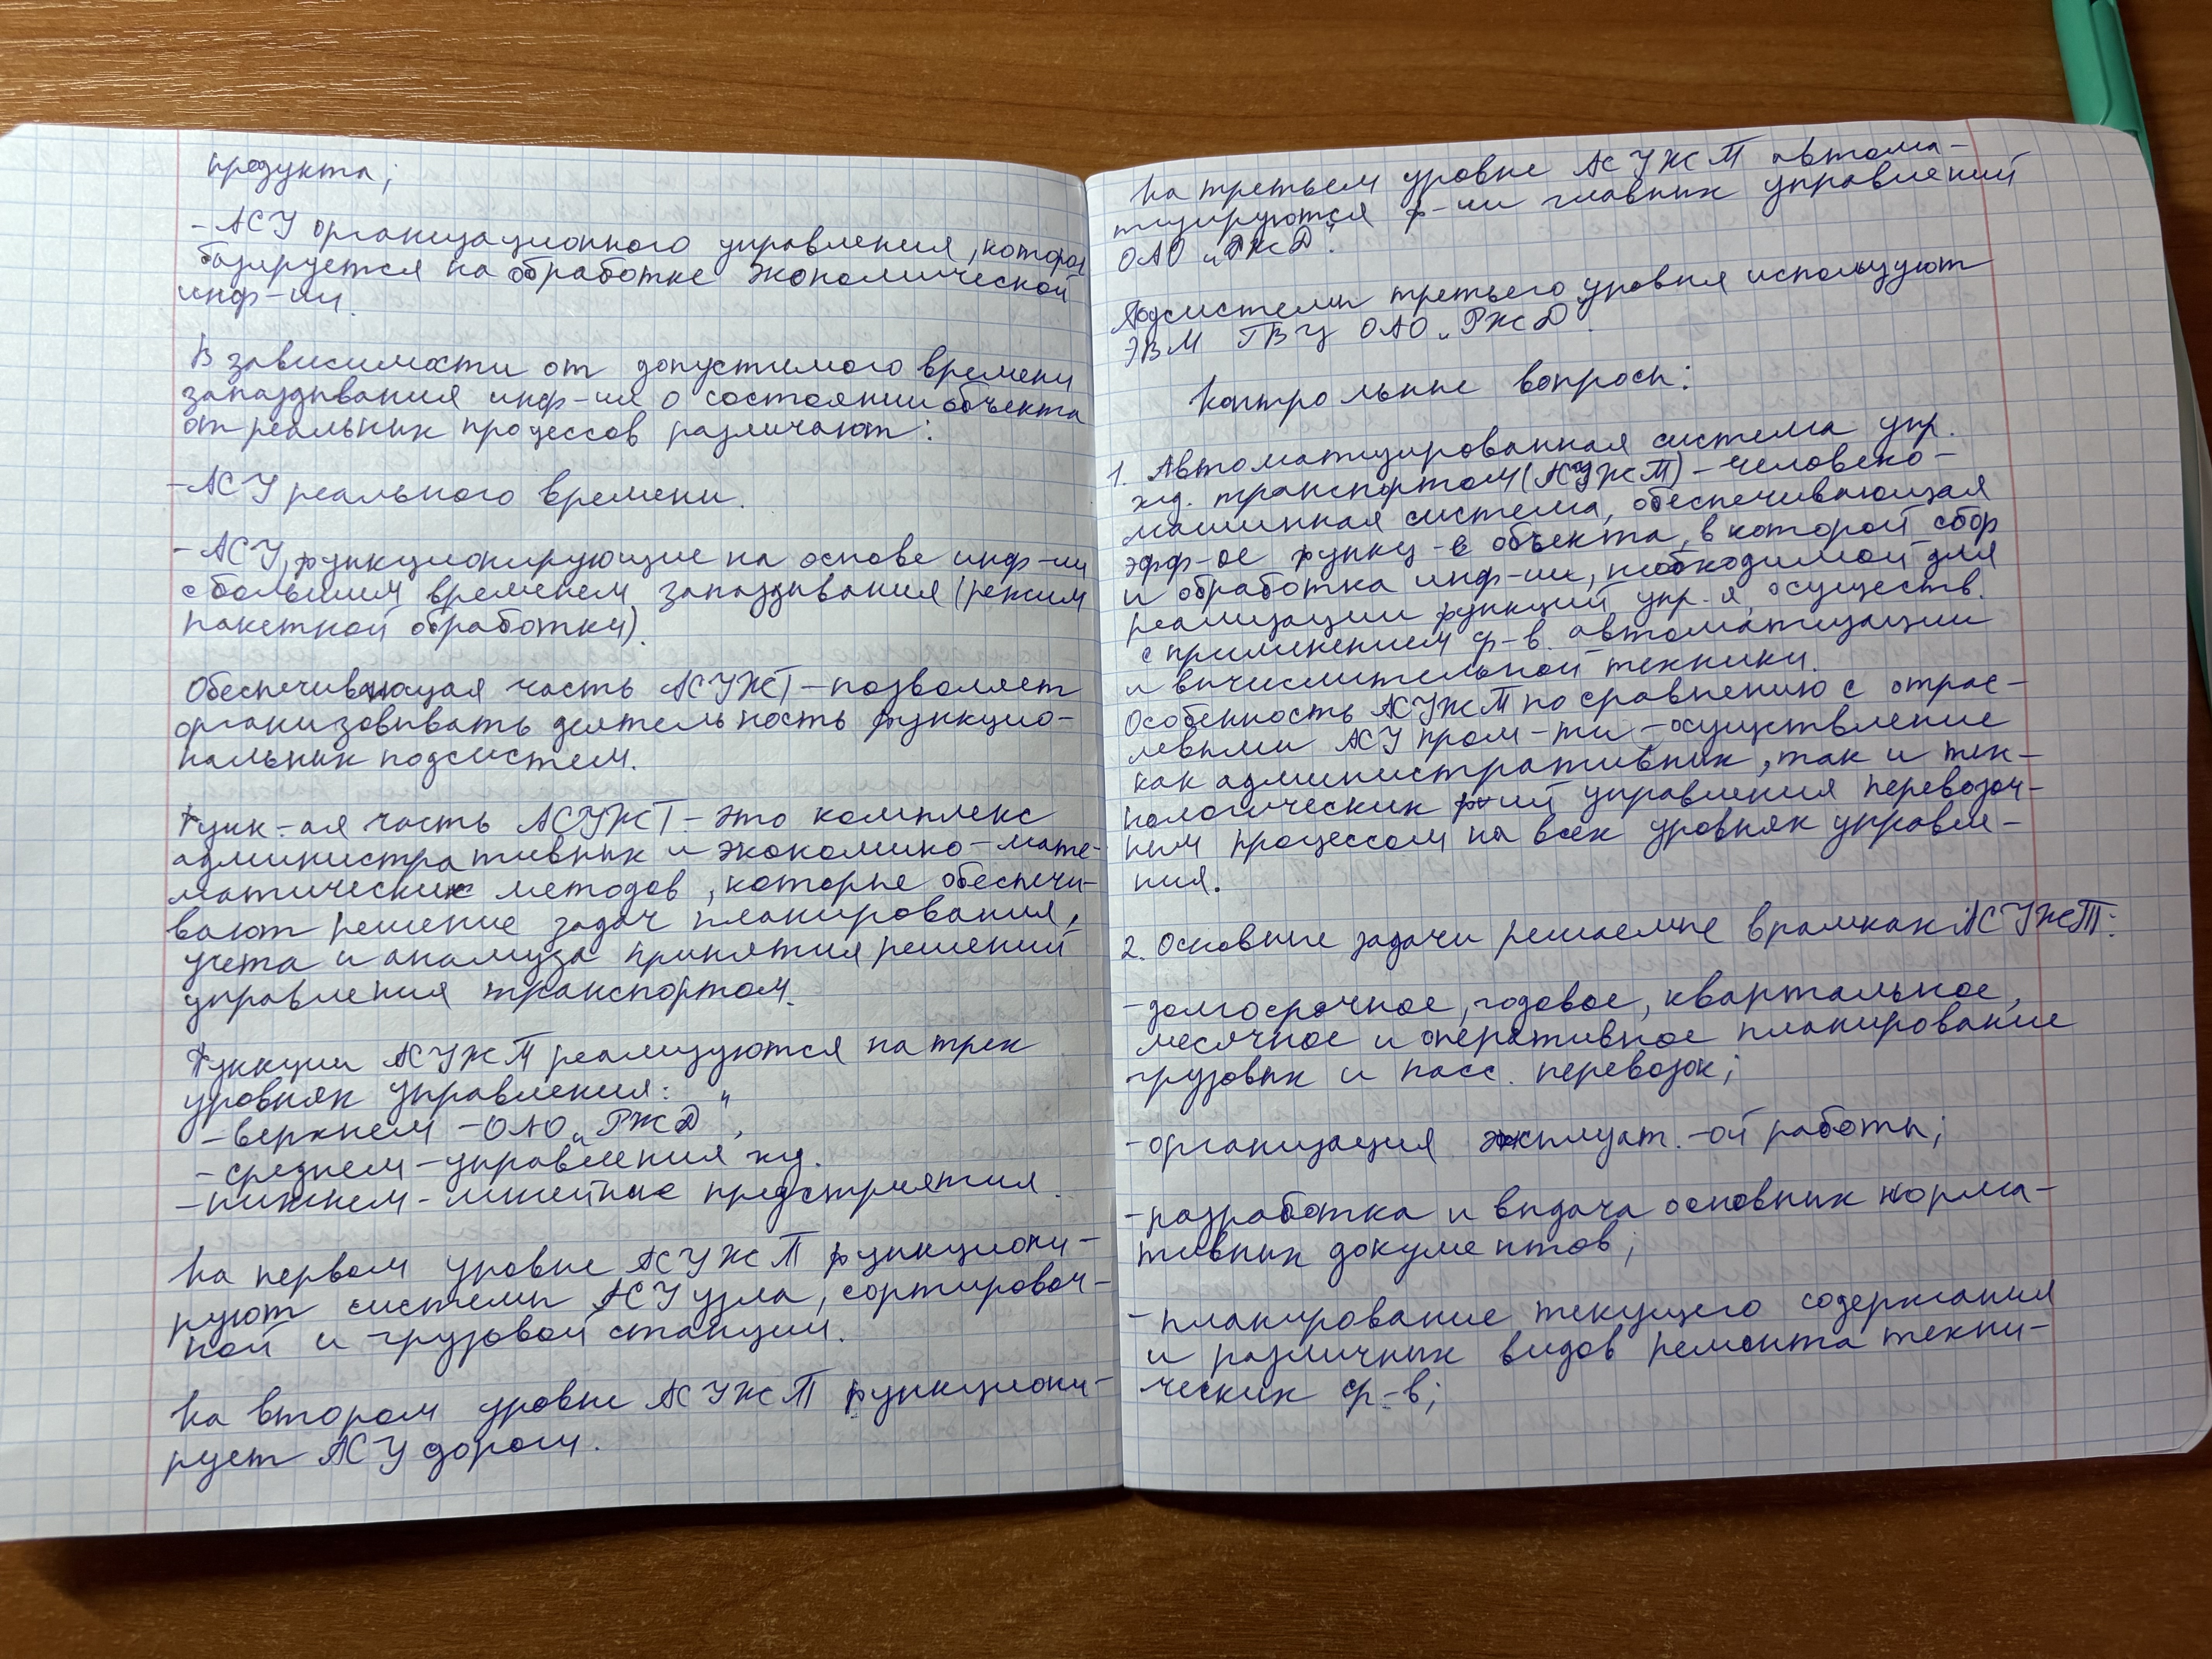 продукта;
- АСУ организационного управления, которая
базируется на обработке экономической
инф-ии.
В зависимости от допустимого времени
запаздывания инф-ия о состоянии объекта
от реальных процессов различают:
- АСУ реального времени.
- АСУ, функционирующие на основе инф-ии
с большим временем запаздывания (режим
пакетной обработки).
Обеспечивающая часть АСУЖТ - позволяет
организовывать деятельность функцио-
нальных подсистем.
Функ-ая часть АСУЖТ - это комплекс
административных и экономико-мате-
матических методов, которые обеспечи-
вают решение задач планирования,
учета и анализа принятия решений
управления транспортом.
Функции АСУЖТ реализуются на трех
уровнях управления:
- верхнем - ОАО „РЖД",
- среднем - управления жд.
- нижнем - линейные предприятия.
На первом уровне АСУЖТ функциони-
руют системы АСУ узла, сортировоч-
ной и грузовой станции.
На втором уровне АСУЖТ функциони-
рует АСУ дороги.
На третьем уровне АСУЖТ автома-
тизируются ф-ии главных управлений
ОАО „РЖД".
Подсистемы третьего уровня используют
ЭВМ ГВЦ ОАО „РЖД".
Контрольные вопросы:
1. Автоматизированная система упр.
жд. транспортом (АСУЖТ) - человеко-
машинная система, обеспечивающая
эфф-ое функц-е объекта, в которой сбор
и обработка инф-ии, необходимой для
реализации функций упр-я, осуществ.
с применением ср-в. автоматизации
и вычислительной техники.
Особенность АСУЖТ по сравнению с отрас-
левыми АСУ пром-ти - осуществление
как административных, так и тех-
нологических ф-ий управления перевозоч-
ным процессом на всех уровнях управле-
ния.
2. Основные задачи решаемые в рамках АСУЖТ:
- долгосрочное, годовое, квартальное,
месячное и оперативное планирование
грузовых и пасс. перевозок;
- организация эксплуат.-ой работы;
- разработка и выдача основных норма-
тивных документов;
- планирование текущего содержания
и различных видов ремонта техни-
ческих ср-в;